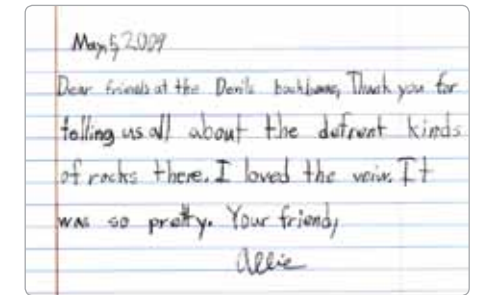 May, 5, 2009
Dear friends at the Devils backbone, Thank you for
telling us all about the defrent kinds
of rocks there. I loved the veiw. It
was so pretty. Your friend,
Allie